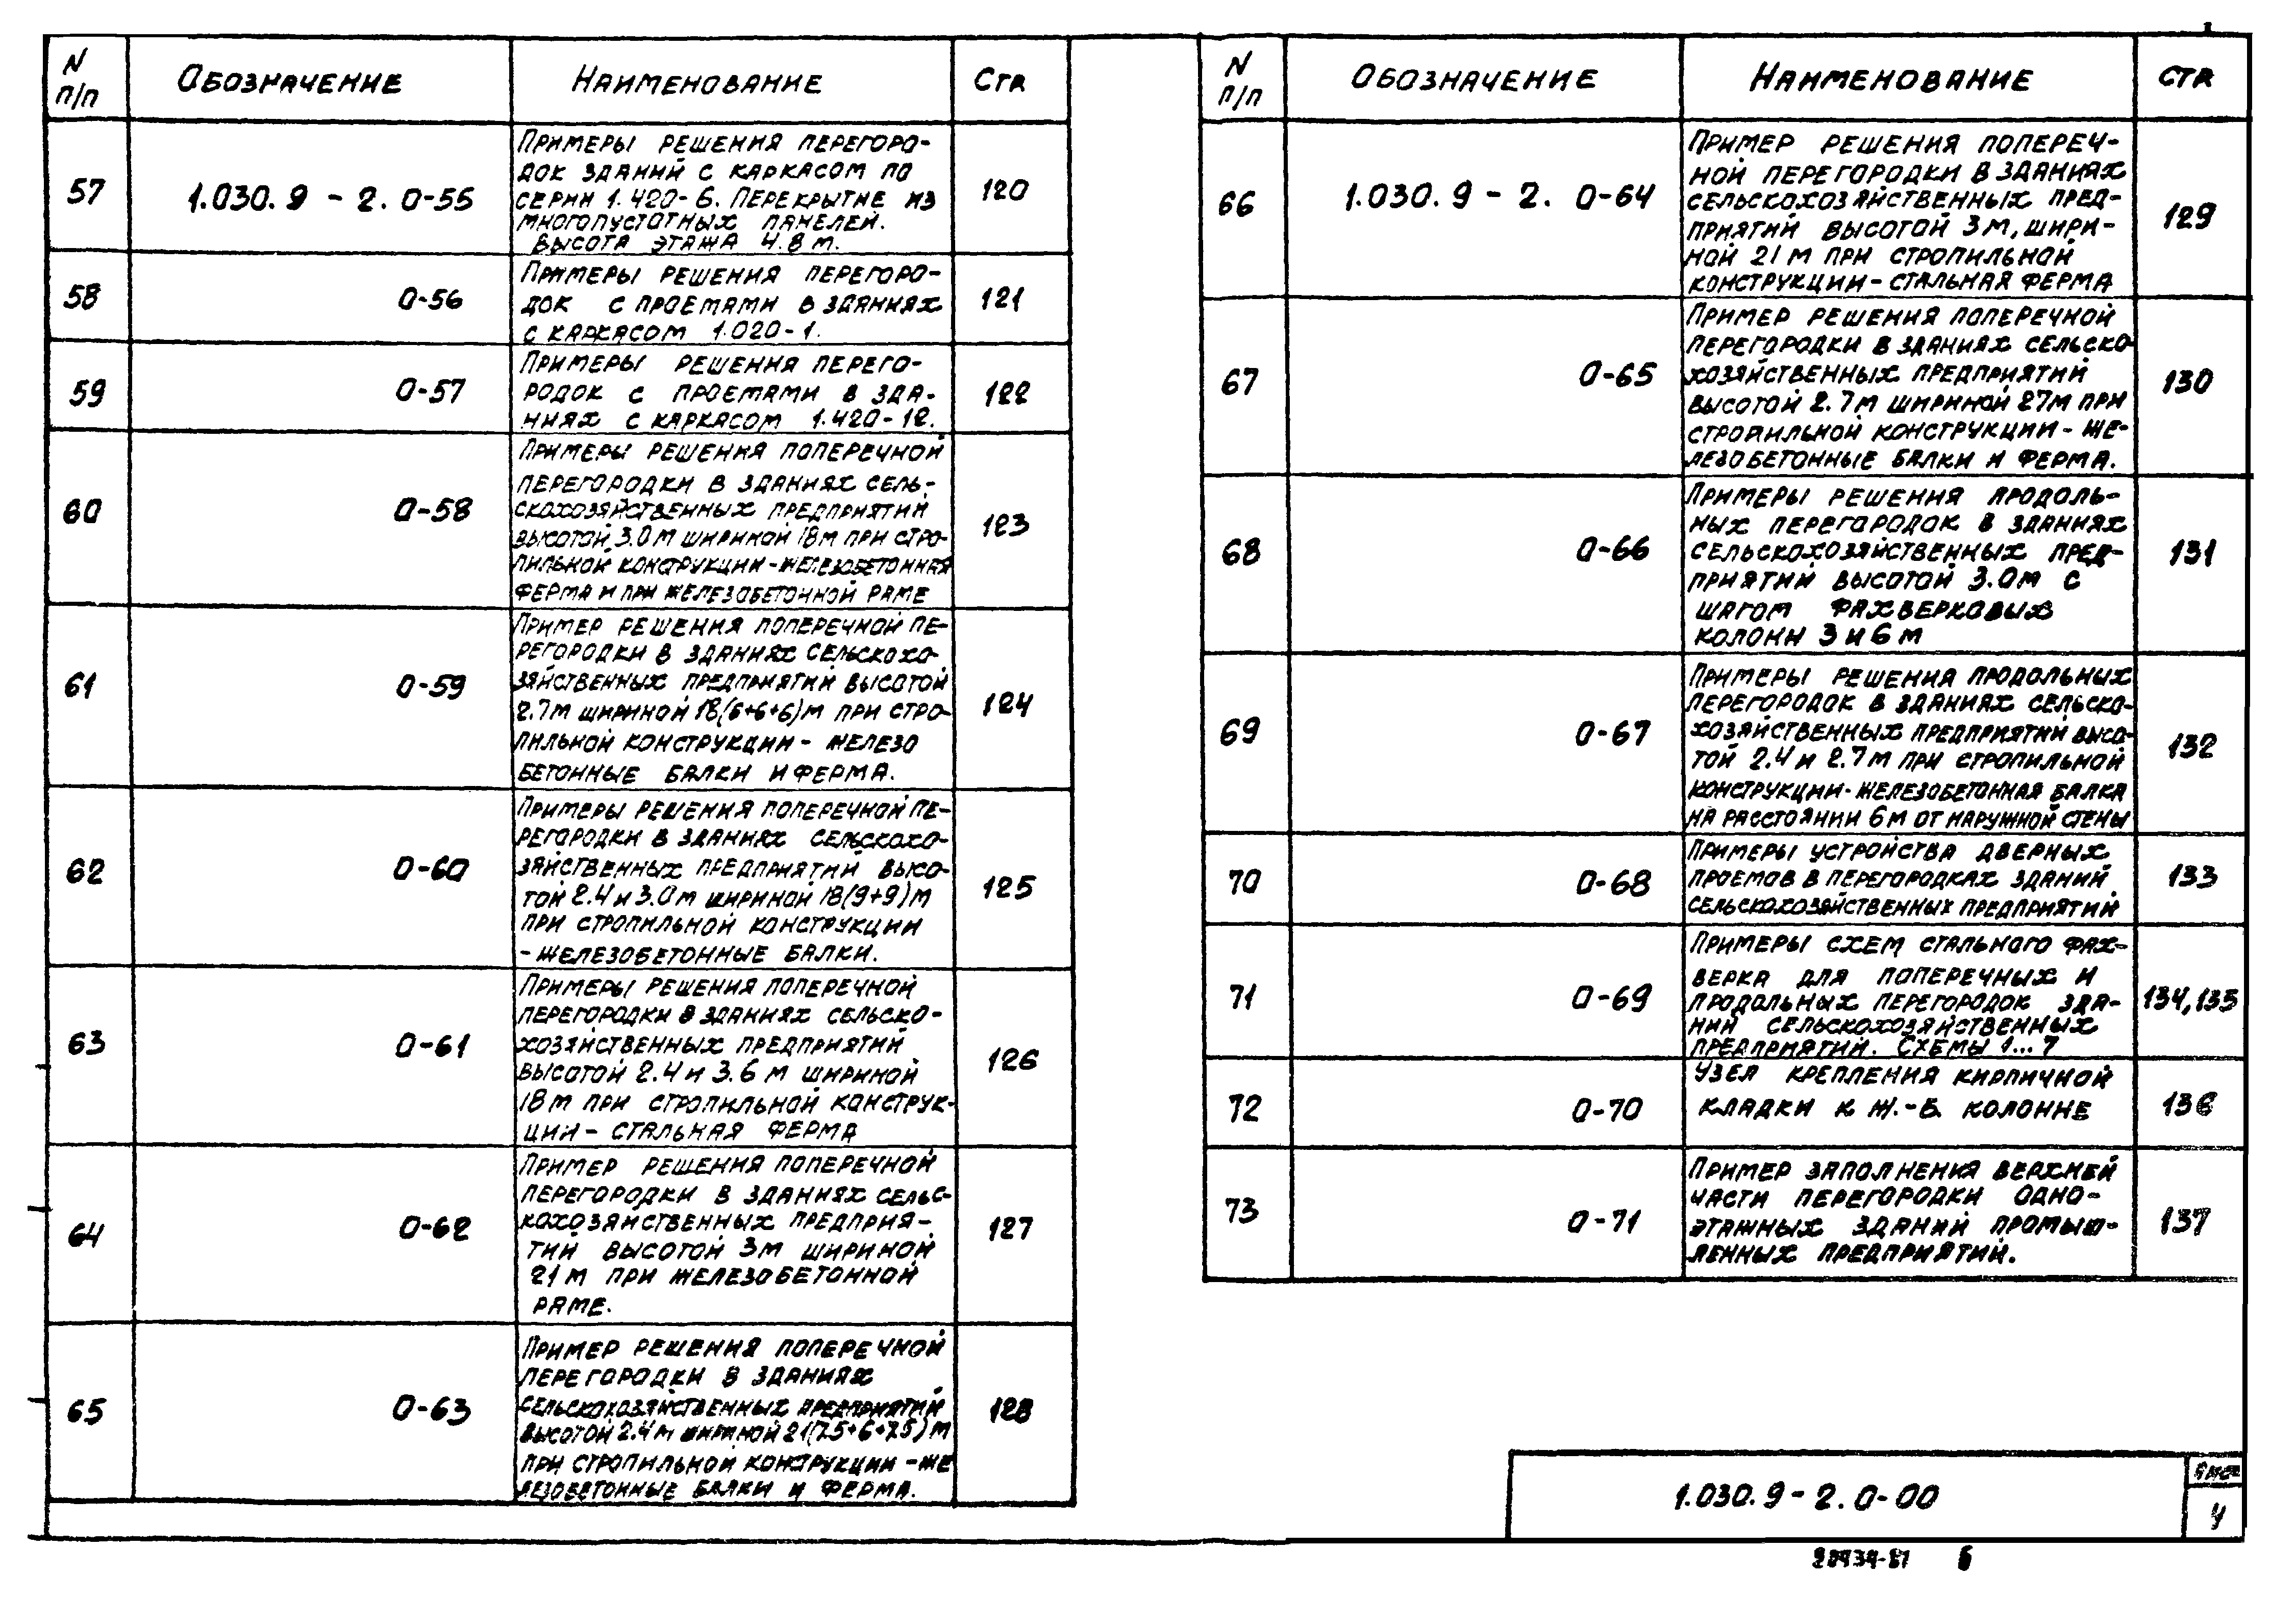 N п/п Обозначение Наименование Стр
57 1.030.9-2. 0-55 Примеры решения перегоро-
док зданий с каркасом по
серии 1.420-6. Перекрытие из 120
многопустотных панелей.
Высота этажа 4.8 м.
58 0-56 Примеры решения перегоро-
док с проемами в зданиях 121
с каркасом 1.020-1.
59 0-57 Примеры решения перего-
родок с проемами в зда- 122
ниях с каркасом 1.420-12.
60 0-58 Примеры решения поперечной
перегородки в зданиях сель-
скохозяйственных предприятий 123
высотой 3.0 м шириной 18 м при стро-
пильной конструкции - железобетонная
ферма и при железобетонной раме
61 0-59 Пример решения поперечной пе-
регородки в зданиях сельскохо-
зяйственных предприятий высотой
2.7 м шириной 18(6+6+6) м при стро- 124
пильной конструкции - железо
бетонные балки и ферма.
62 0-60 Примеры решения поперечной пе-
регородки в зданиях сельскохо-
зяйственных предприятий высо-
той 2.4 и 3.0 м шириной 18(9+9) м 125
при стропильной конструкции
- железобетонные балки.
63 0-61 Примеры решения поперечной
перегородки в зданиях сельско-
хозяйственных предприятий 126
высотой 2.4 и 3.6 м шириной
18 м при стропильной конструк-
ции - стальная ферма
64 0-62 Пример решения поперечной
перегородки в зданиях сельс-
кохозяйственных предприя- 127
тий высотой 3м шириной
21 м при железобетонной
раме.
65 0-63 Пример решения поперечной
перегородки в зданиях
сельскохозяйственных предприятий 128
высотой 2.4 м шириной 21(7.5+6+7.5) м
при стропильной конструкции - же
лезобетонные балки и ферма.
N п/п Обозначение Наименование Стр
66 1.030.9-2. 0-64 Пример решения попереч-
ной перегородки в зданиях
сельскохозяйственных пред- 129
приятий высотой 3 м, шири-
ной 21 м при стропильной
конструкции - стальная ферма
67 0-65 Пример решения поперечной
перегородки в зданиях сельско
хозяйственных предприятий 130
высотой 2.7 м шириной 27м при
стропильной конструкции - же-
лезобетонные балки и ферма.
68 0-66 Примеры решения продоль-
ных перегородок в зданиях
сельскохозяйственных пред- 131
приятий высотой 3.0м с
шагом фахверковых
колонн 3 и 6 м
69 0-67 Примеры решения продольных
перегородок в зданиях сельско-
хозяйственных предприятий высо-
той 2.4 и 2.7 м при стропильной 132
конструкции - железобетонная балка
на расстоянии 6 м от наружной стены
70 0-68 Примеры устройства дверных
проемов в перегородках зданий 133
сельскохозяйственных предприятий
71 0-69 Примеры схем стального фах-
верка для поперечных и
продольных перегородок зда- 134,135
ний сельскохозяйственных
предприятий. Схемы 1...7
72 0-70 Узел крепления кирпичной
кладки к ж.-б. колонне 136
73 0-71 Пример заполнения верхней
части перегородки одно-
этажных зданий промыш- 137
ленных предприятий.
1.030.9-2.0-00
Лист
4
6